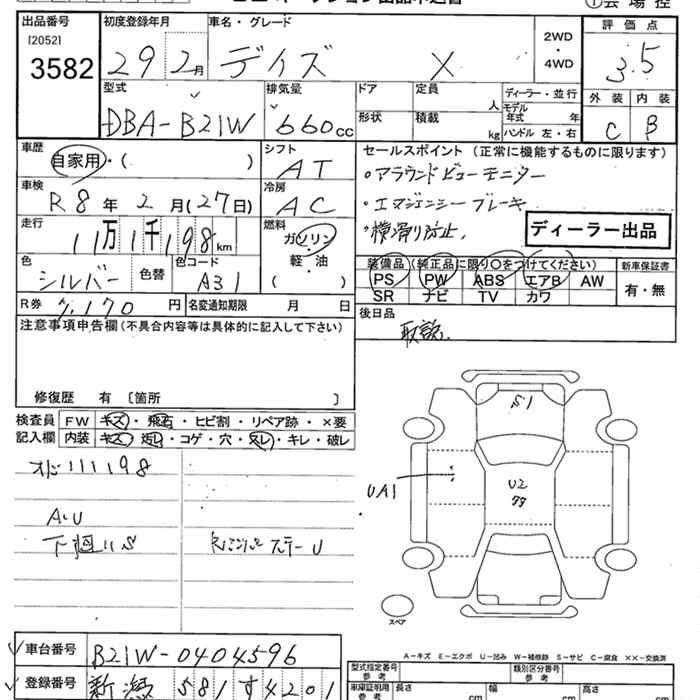 ①会場控
出品番号 初度登録年月 車名・グレード 2WD・4WD 評価点
[2052]
3582 29 2月 デイズ X 3.5
型式 排気量 ドア 定員 人 ディーラー・並行 外装 内装
モデル年式 年
DBA-B21W 660cc 形状 積載 kg ハンドル 左・右 C B
車歴 シフト セールスポイント (正常に機能するものに限ります)
自家用・( ) AT ・アラウンドビューモニター
車検 冷房 ・エマジェンシーブレーキ
R8年2月(27日) AC ・横滑り防止.
走行 燃料 ディーラー出品
11万1千198km ガソリン
軽・油
( )
色 色替 色コード 装備品(純正品に限り○をつけてください) 新車保証書
シルバー A31 PS PW ABS エアB AW 有・無
SR ナビ TV カワ
R券 7,170円 名変通知期限 月 日 後日品
取説.
注意事項申告欄(不具合内容等は具体的に記入して下さい)
修復歴 有 〔箇所 〕
検査員 FW キズ・飛石・ヒビ割・リペア跡・×要
記入欄 内装 キズ・汚レ・コゲ・穴・スレ・キレ・破レ
S1
111198
UA1
U2
A.U
スペア
A-キズ E-エクボ U-凹み W-補修跡 S-サビ C-腐食 ××-交換済
車台番号 B21W-0404596 型式指定番号 参考 類別区分番号 参考
登録番号 新潟 581 す4201 車庫証明用 参考 長さ cm 幅 cm 高さ cm